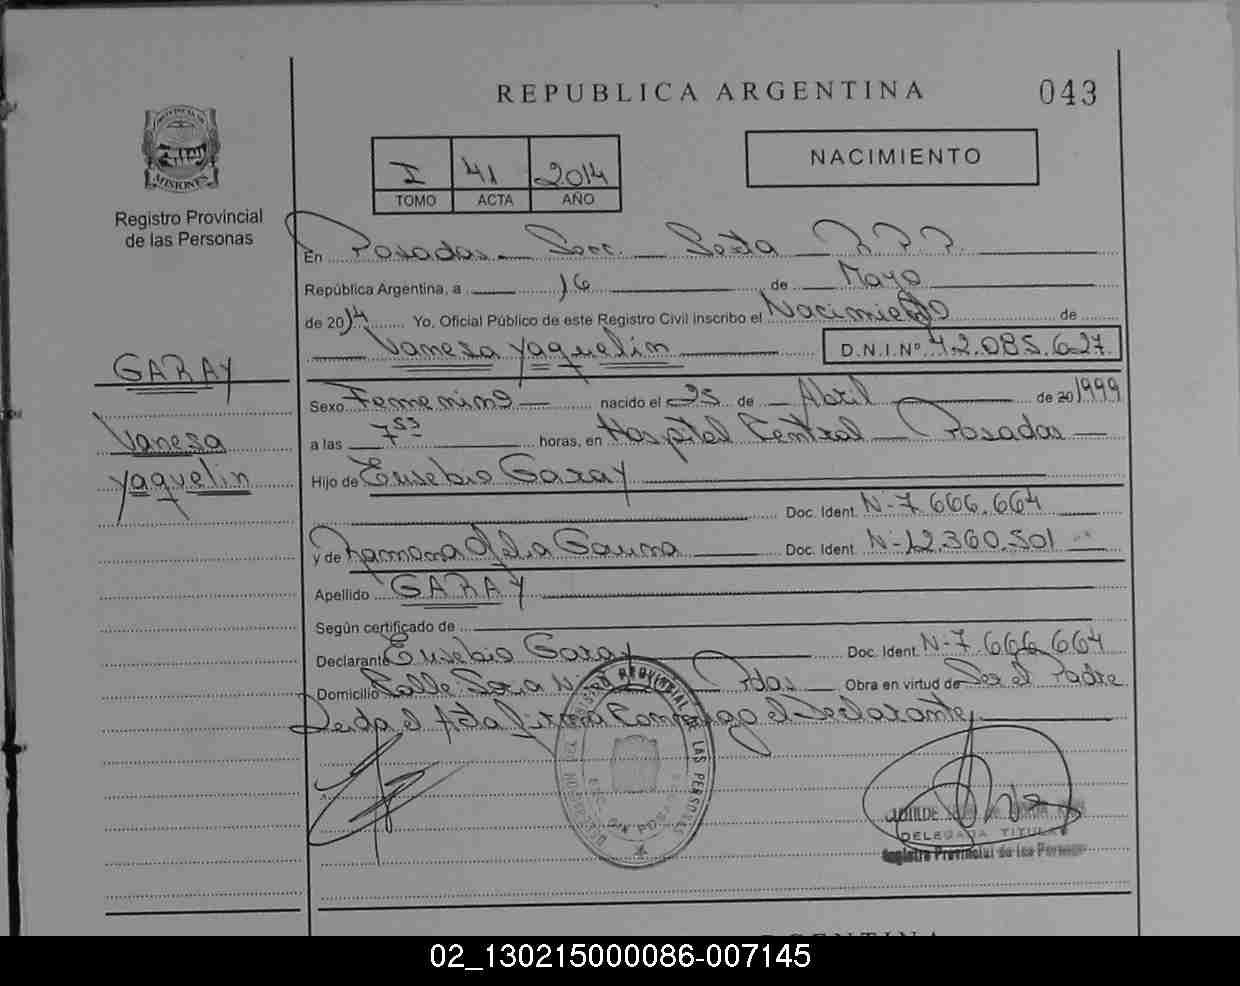 REPUBLICA ARGENTINA
043
PROVINCIA DE
MISIONES
Registro Provincial
de las Personas
I 41 2014
TOMO ACTA AÑO
NACIMIENTO
En Posadas Secc. Sexta R.P.P.
República Argentina, a 16 de Mayo
de 2014 Yo. Oficial Público de este Registro Civil inscribo el Nacimiento de
Vanesa Yaquelin D.N.I.Nº 42.085.627
GARAY
Vanesa
Yaquelin
Sexo Femenino nacido el 25 de Abril de 20 1999
a las 7 53 horas, en Hospital Central Posadas
Hijo de Eusebio Garay
Doc. Ident. N-7.666.664
y de Ramona Delia Gauna Doc. Ident. N-12.360.501
Apellido GARAY
Según certificado de
Declarante Eusebio Garay Doc. Ident. N-7.666.664
Domicilio Calle Pdas Obra en virtud de Ser el Padre
Leida el Acta firma Conmigo el Declarante
REGISTRO PROVINCIAL DE LAS PERSONAS
POSADAS
DELEGADA TITULAR
Registro Provincial de las Personas
ARGENTINA
02_130215000086-007145